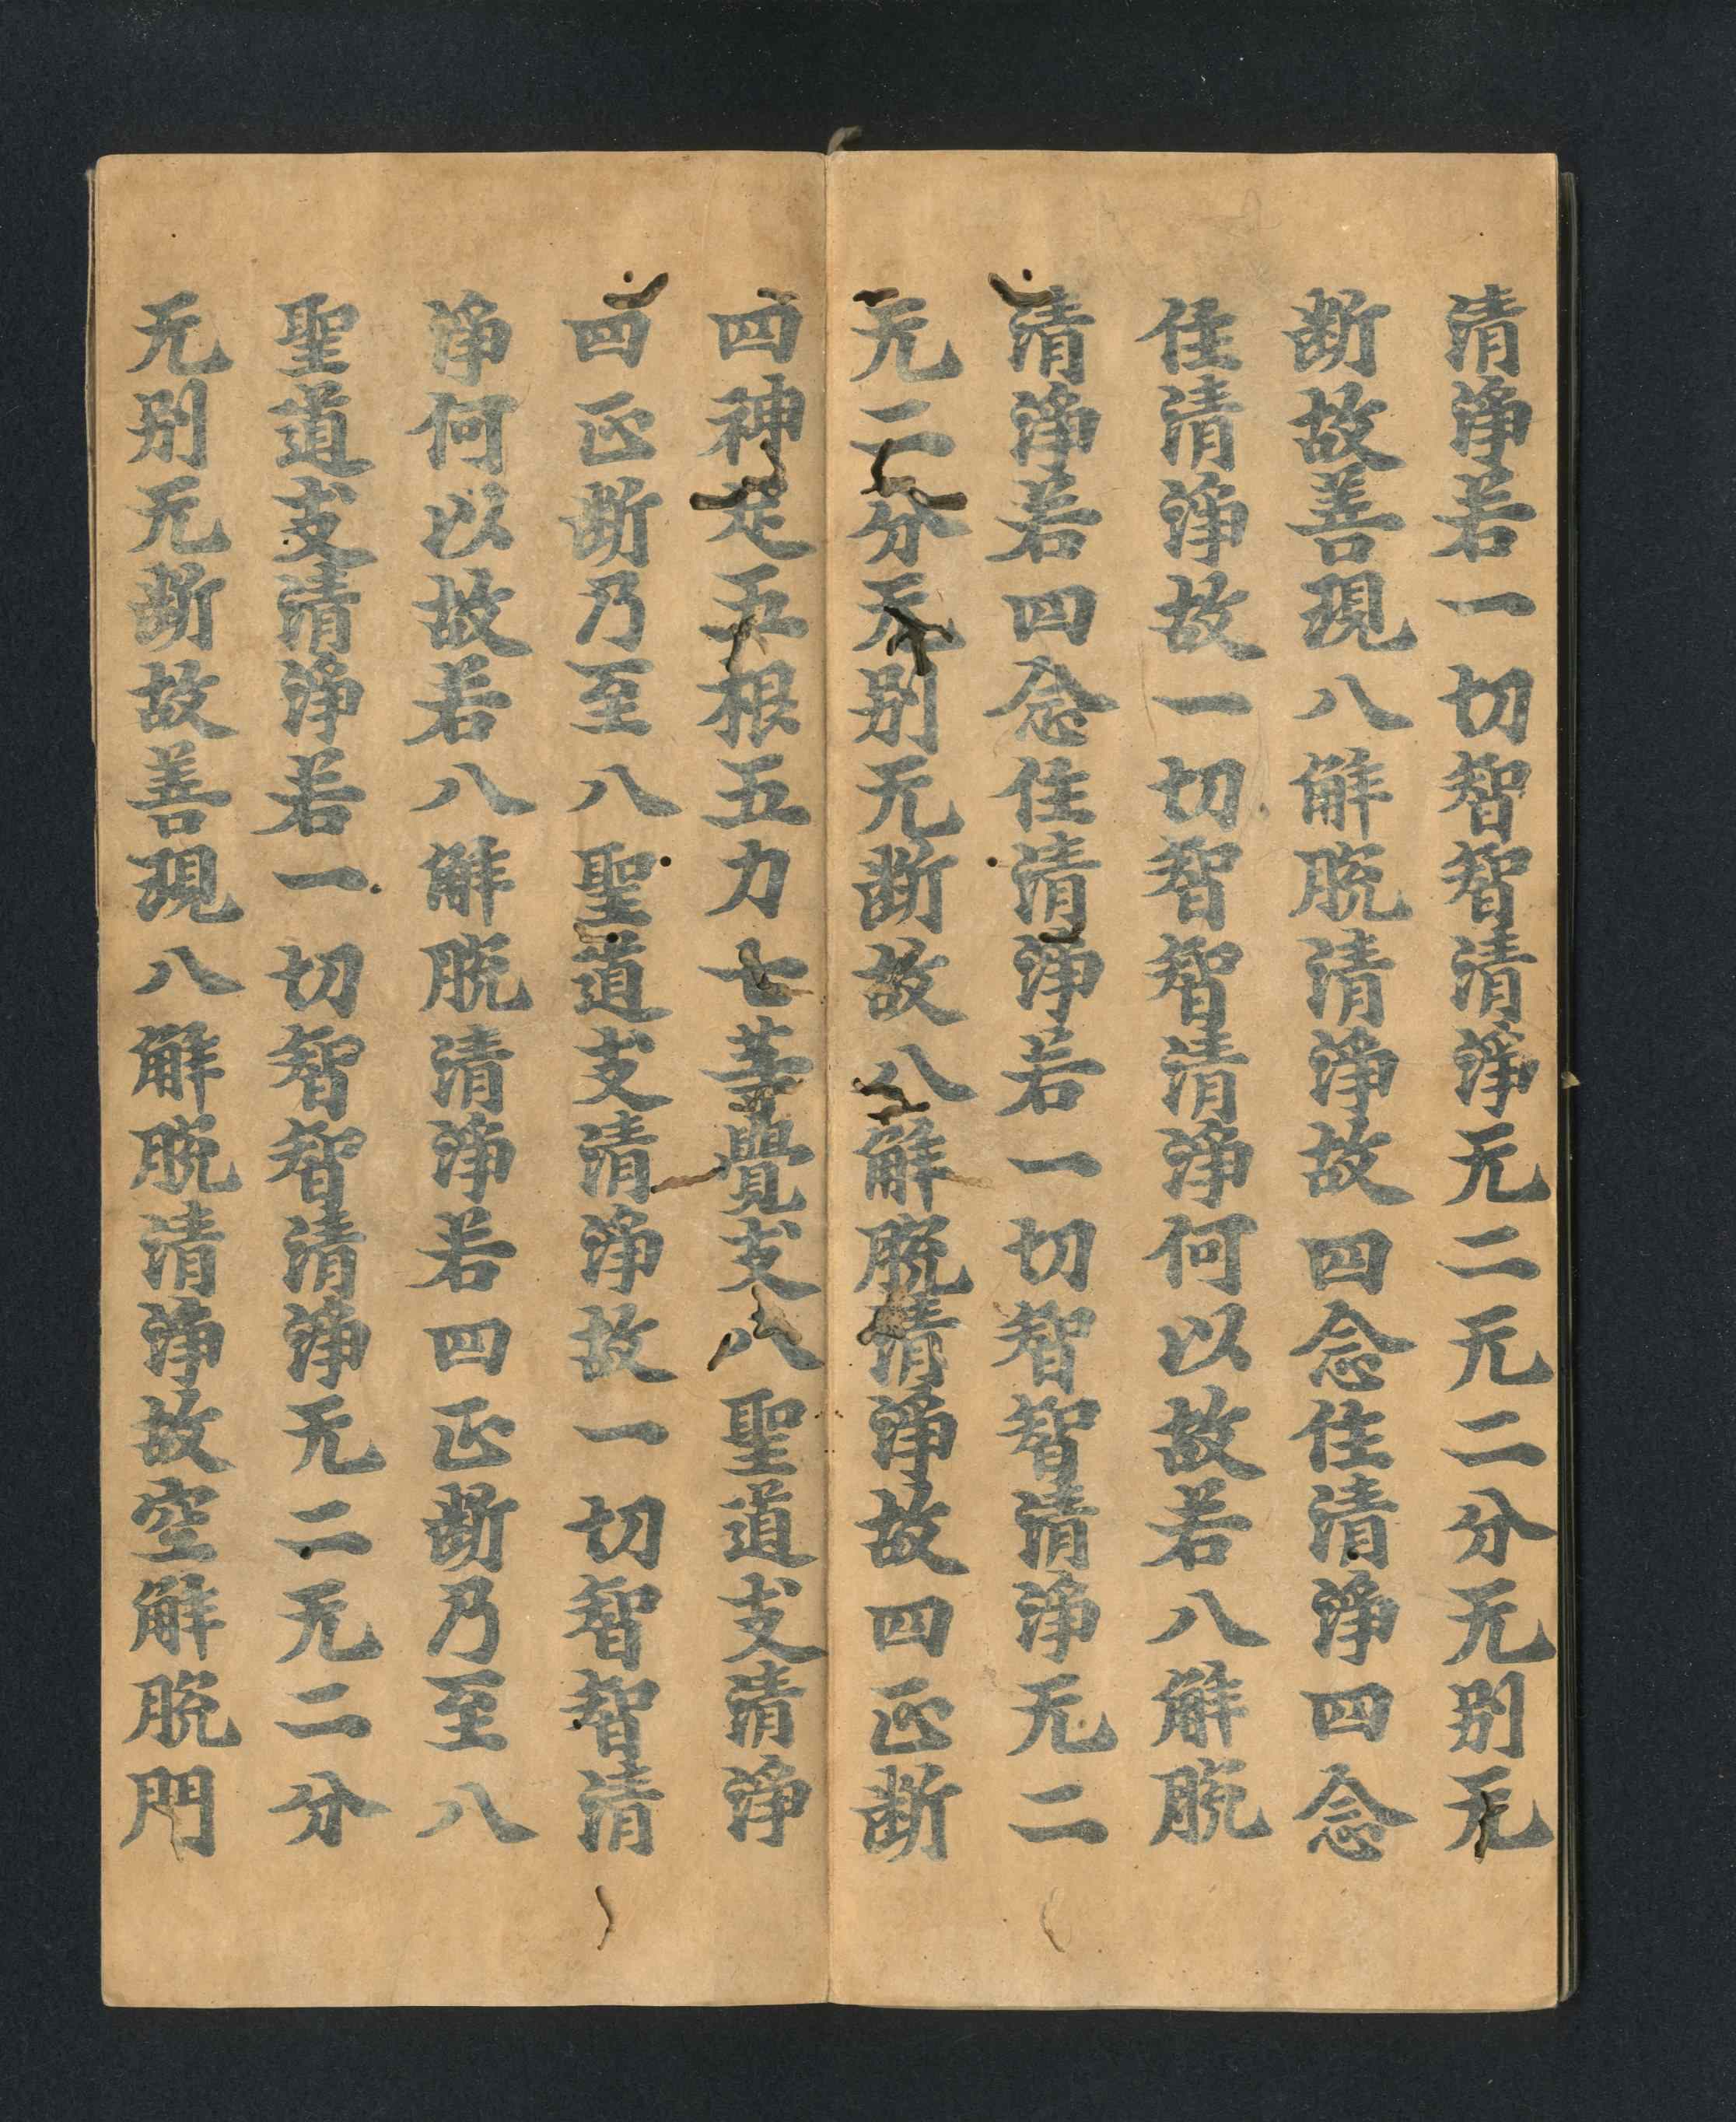 清淨若一切智智清淨无二无二分无別无
斷故善現八解脫清淨故四念住清淨四念
住清淨故一切智智清淨何以故若八解脫
清淨若四念住清淨若一切智智清淨无二
无二分无別无斷故八解脫清淨故四正斷
四神足五根五力七等覺支八聖道支清淨
四正斷乃至八聖道支清淨故一切智智清
淨何以故若八解脫清淨若四正斷乃至八
聖道支清淨若一切智智清淨无二无二分
无別无斷故善現八解脫清淨故空解脫門